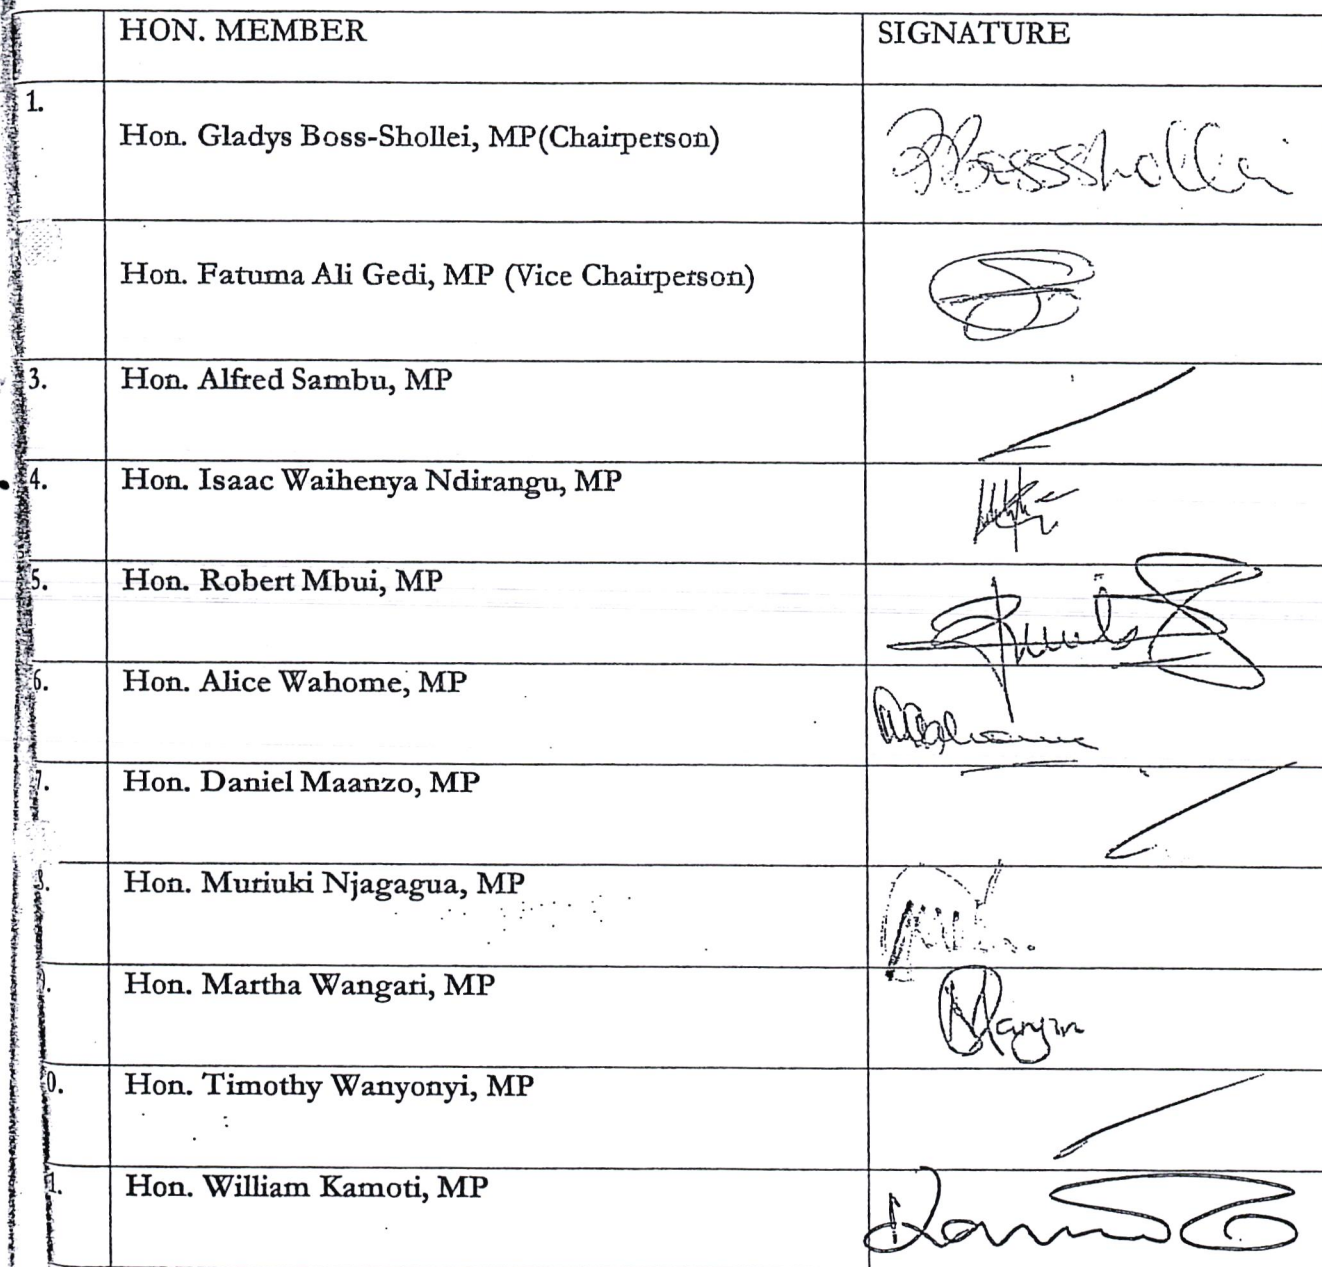 HON. MEMBER SIGNATURE
1.
Hon. Gladys Boss-Shollei, MP(Chairperson)
Hon. Fatuma Ali Gedi, MP (Vice Chairperson)
3. Hon. Alfred Sambu, MP
4. Hon. Isaac Waihenya Ndirangu, MP
5. Hon. Robert Mbui, MP
6. Hon. Alice Wahome, MP
7. Hon. Daniel Maanzo, MP
Hon. Muriuki Njagagua, MP
Hon. Martha Wangari, MP
0. Hon. Timothy Wanyonyi, MP
1. Hon. William Kamoti, MP